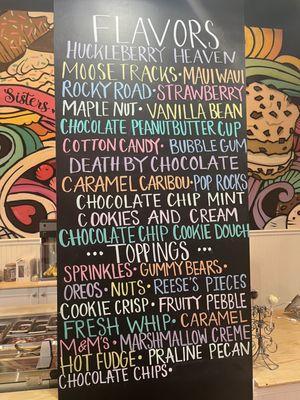 FLAVORS
HUCKLEBERRY HEAVEN
MOOSE TRACKS • MAUI WAUI
ROCKY ROAD • STRAWBERRY
MAPLE NUT • VANILLA BEAN
CHOCOLATE PEANUTBUTTER CUP
COTTON CANDY • BUBBLE GUM
DEATH BY CHOCOLATE
CARAMEL CARIBOU • POP ROCKS
CHOCOLATE CHIP MINT
COOKIES AND CREAM
CHOCOLATE CHIP COOKIE DOUGH
... TOPPINGS ...
SPRINKLES • GUMMY BEARS •
OREOS • NUTS • REESE'S PIECES
COOKIE CRISP • FRUITY PEBBLE
FRESH WHIP • CARAMEL
M&M'S • MARSHMALLOW CREME
HOT FUDGE • PRALINE PECAN
CHOCOLATE CHIPS •
Sisters